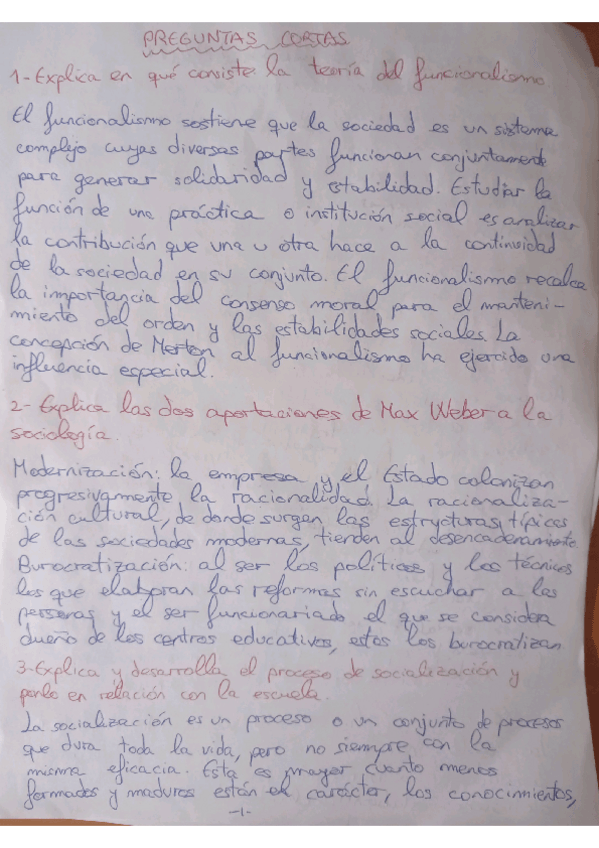 PREGUNTAS CORTAS
1- Explica en qué consiste la teoría del funcionalismo
El funcionalismo sostiene que la sociedad es un sistema
complejo cuyas diversas partes funcionan conjuntamente
para generar solidaridad y estabilidad. Estudiar la
función de una práctica o institución social es analizar
la contribución que una u otra hace a la continuidad
de la sociedad en su conjunto. El funcionalismo recalca
la importancia del consenso moral para el manteni-
miento del orden y las estabilidades sociales. La
concepción de Merton al funcionalismo ha ejercido una
influencia especial.
2- Explica las dos aportaciones de Max Weber a la
sociología.
Modernización: la empresa y el Estado colonizan
progresivamente la racionalidad. La racionaliza-
ción cultural, de donde surgen las estructuras típicas
de las sociedades modernas, tienden al desencadenamiento.
Burocratización: al ser los políticos y los técnicos
los que elaboran las reformas sin escuchar a las
personas y el ser funcionariado el que se considera
dueño de los centros educativos, estos los burocratizan
3- Explica y desarrolla el proceso de socialización y
ponlo en relación con la escuela.
La socialización es un proceso o un conjunto de procesos
que dura toda la vida, pero no siempre con la
misma eficacia. Esta es mayor cuanto menos
formados y maduros están el carácter, los conocimientos,
-1-